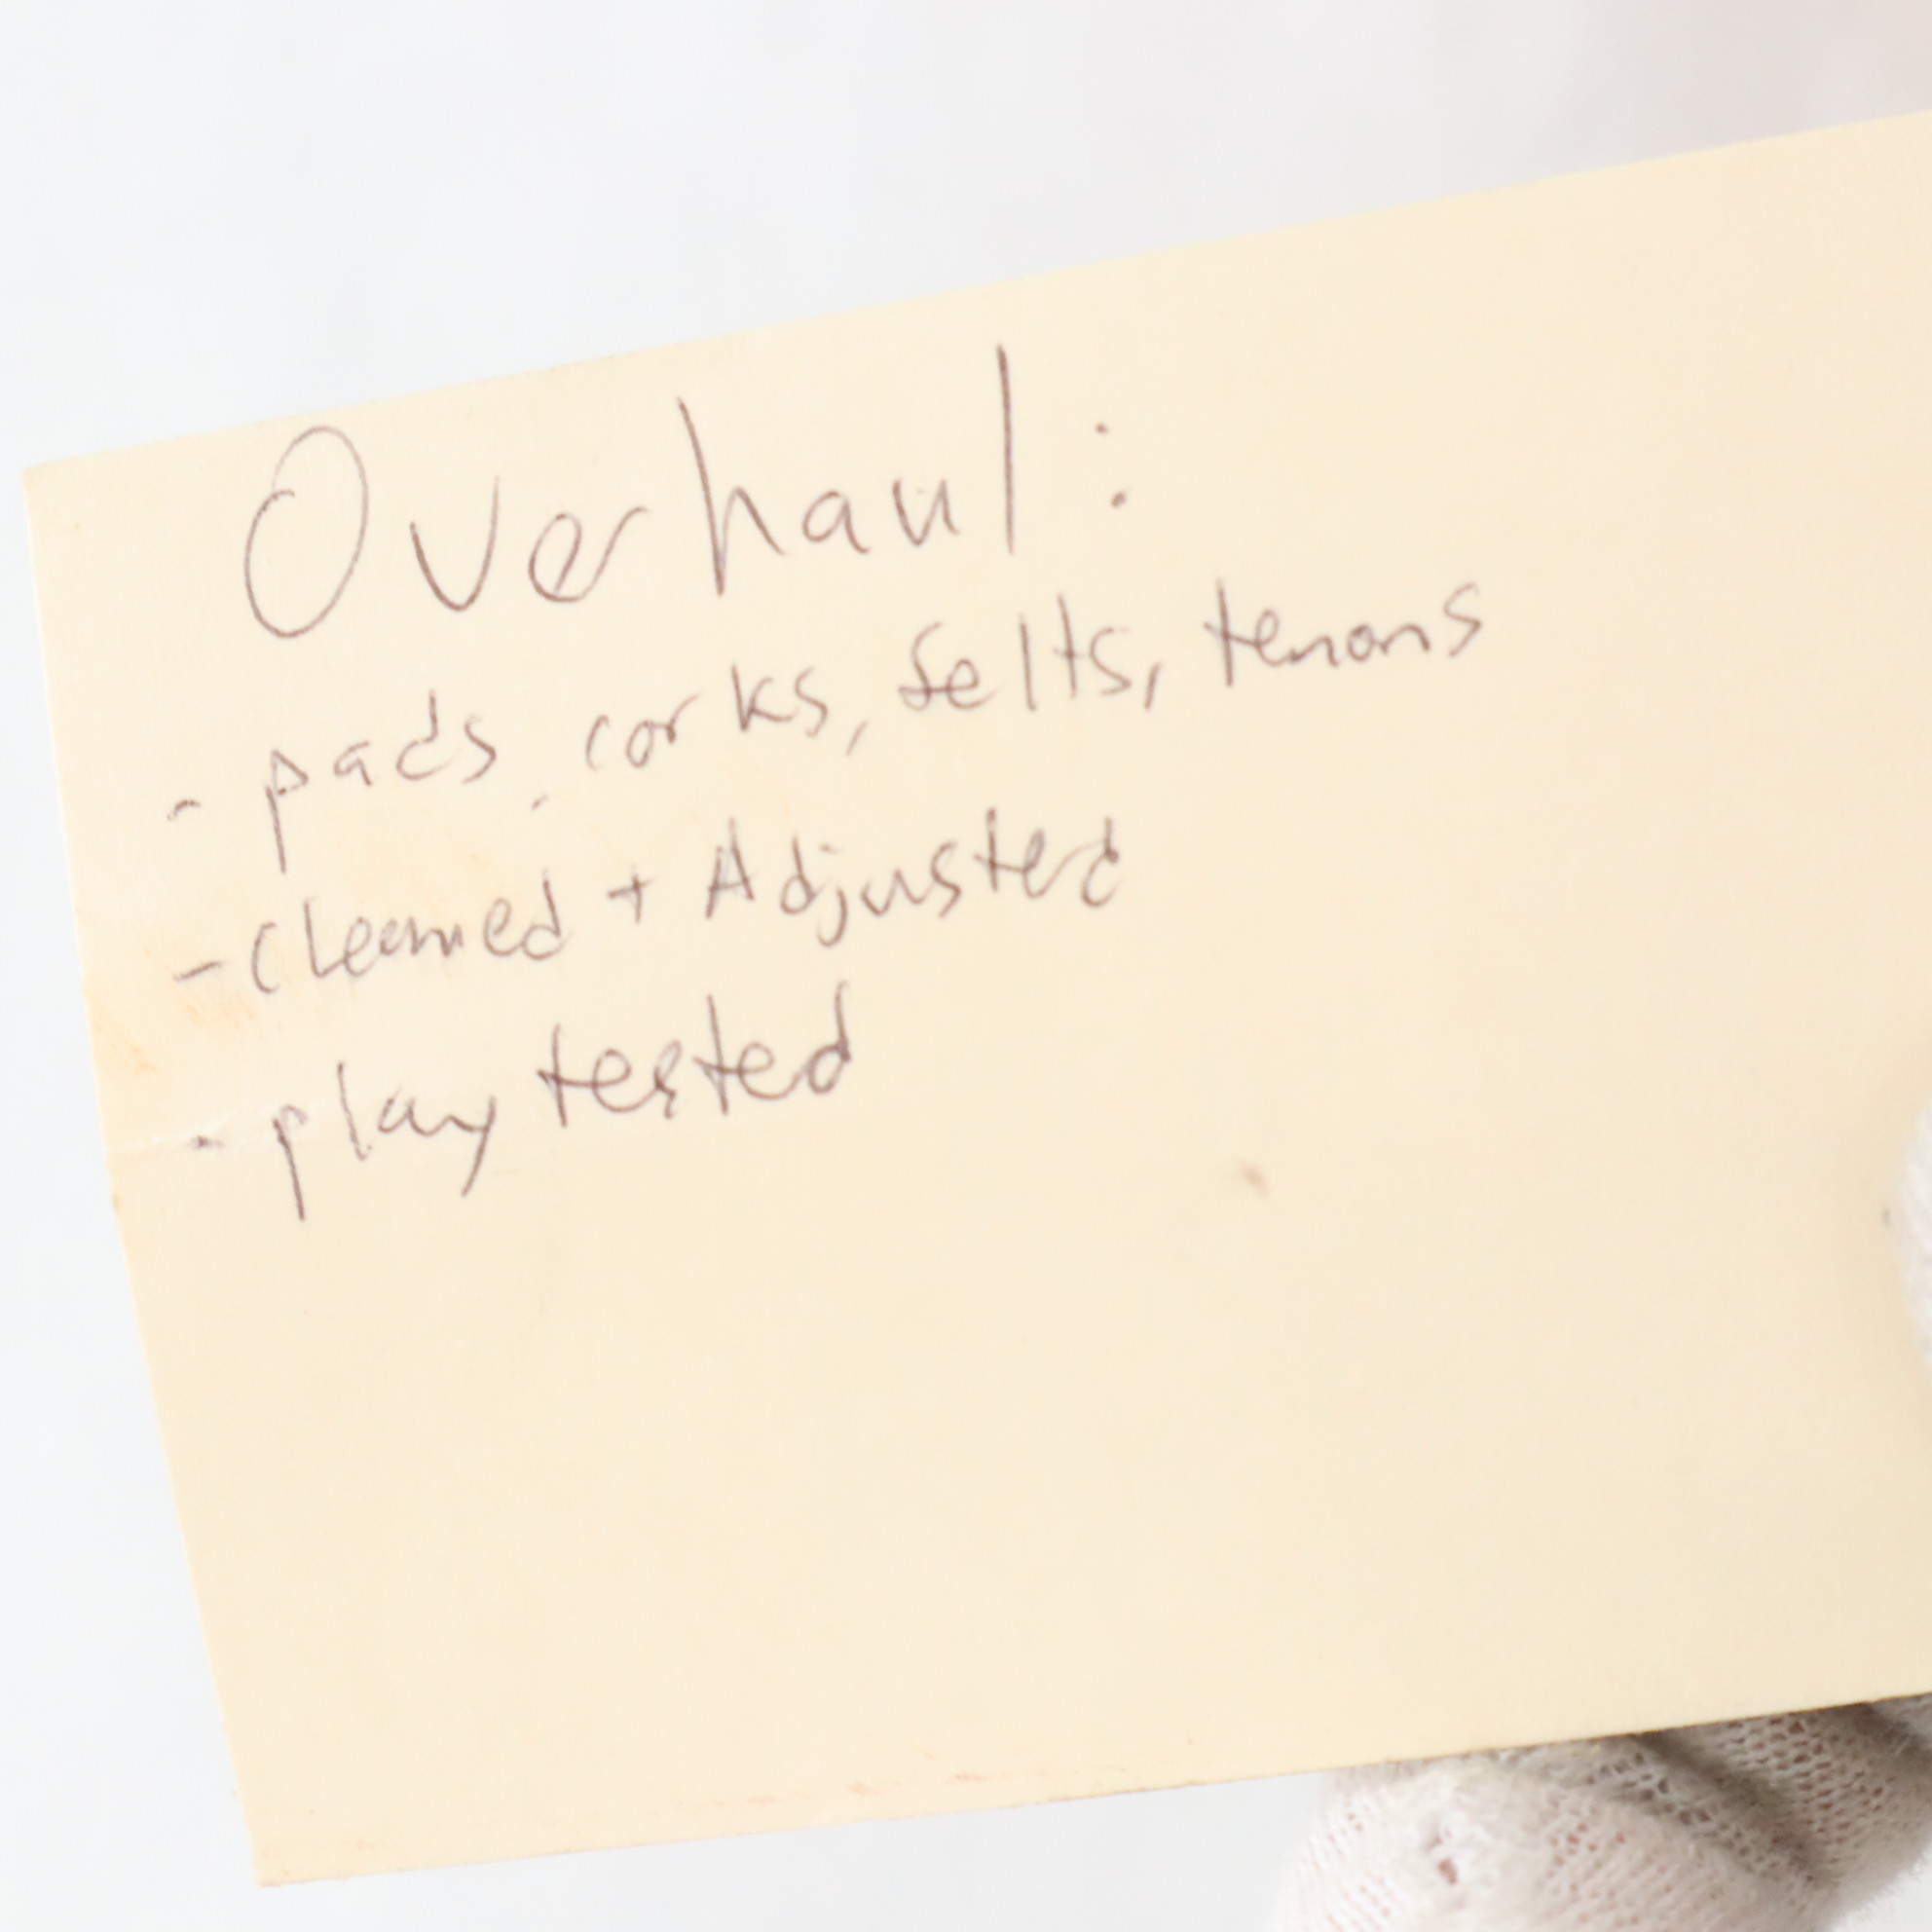 Overhaul:
- pads, corks, felts, tenons
- cleaned + Adjusted
- play tested